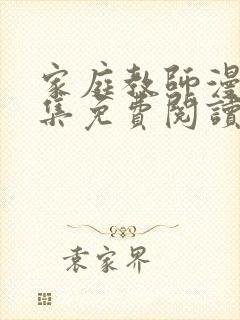 家庭教師漫
集免費閱讀
袁家界